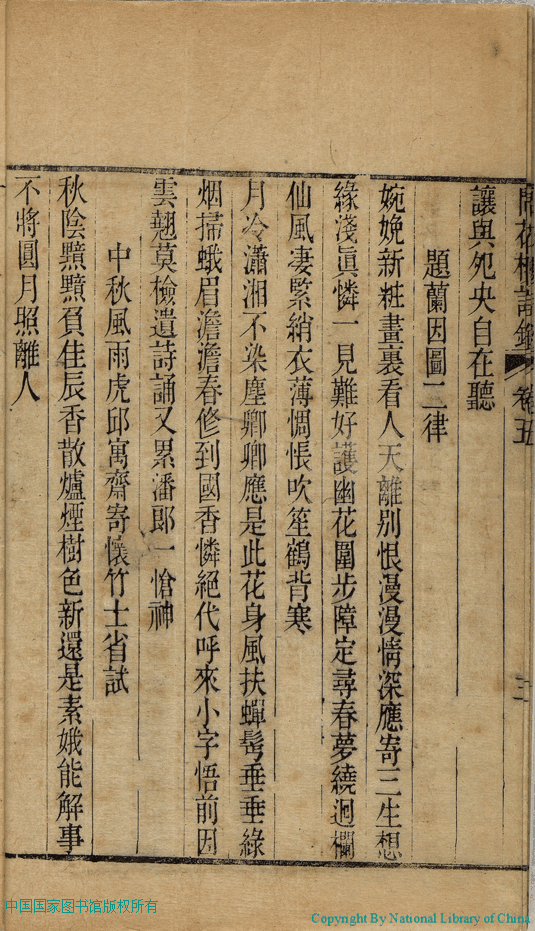 讓與夗央自在聽
題蘭因圖二律
婉娩新粧畫裏看人天離別恨漫漫情深應寄三生想
緣淺眞憐一見難好護幽花圍步障定尋春夢繞迴欄
仙風凄緊綃衣薄惆悵吹笙鶴背寒
月冷瀟湘不染塵卿卿應是此花身風扶蟬鬂垂垂綠
烟掃蛾眉澹澹春修到國香憐絕代呼來小字悟前因
雲翹莫檢遺詩誦又累潘郎一愴神
中秋風雨虎邱寓齋寄懷竹士省試
秋陰黯黯負佳辰香散爐煙樹色新還是素娥能解事
不將圓月照離人
中国国家图书馆版权所有
Copyright By National Library of China